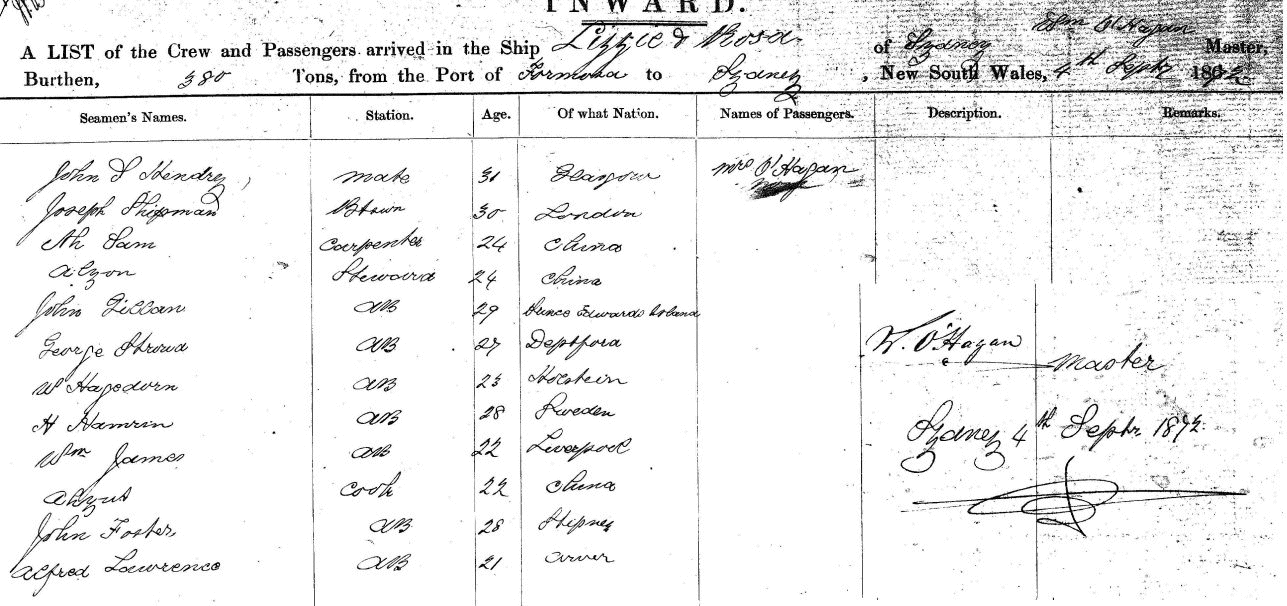 INWARD.
A LIST of the Crew and Passengers arrived in the Ship Lizzie & Rosa of Sydney Wm O'Hagan Master,
Burthen, 380 Tons, from the Port of Formosa to Sydney, New South Wales, 4th Septr 1872
Seamen's Names. Station. Age. Of what Nation. Names of Passengers. Description. Remarks.
John S Hendrey mate 31 Glasgow Mrs O'Hagan
Joseph Shipman Btswn 30 London
Ah Sam Carpenter 24 China
Steward 24 China
John Gillan AB 29 Prince Edwards Island
George Strowd AB 27 Deptford
W Hagedorn AB 23 Holstein
H Hamrin AB 28 Sweden
Wm James AB 22 Liverpool
Cook 22 China
John Foster AB 28 Stepney
Alfred Lawrence AB 21
W. O'Hagan
Master
Sydney 4th Septr 1872